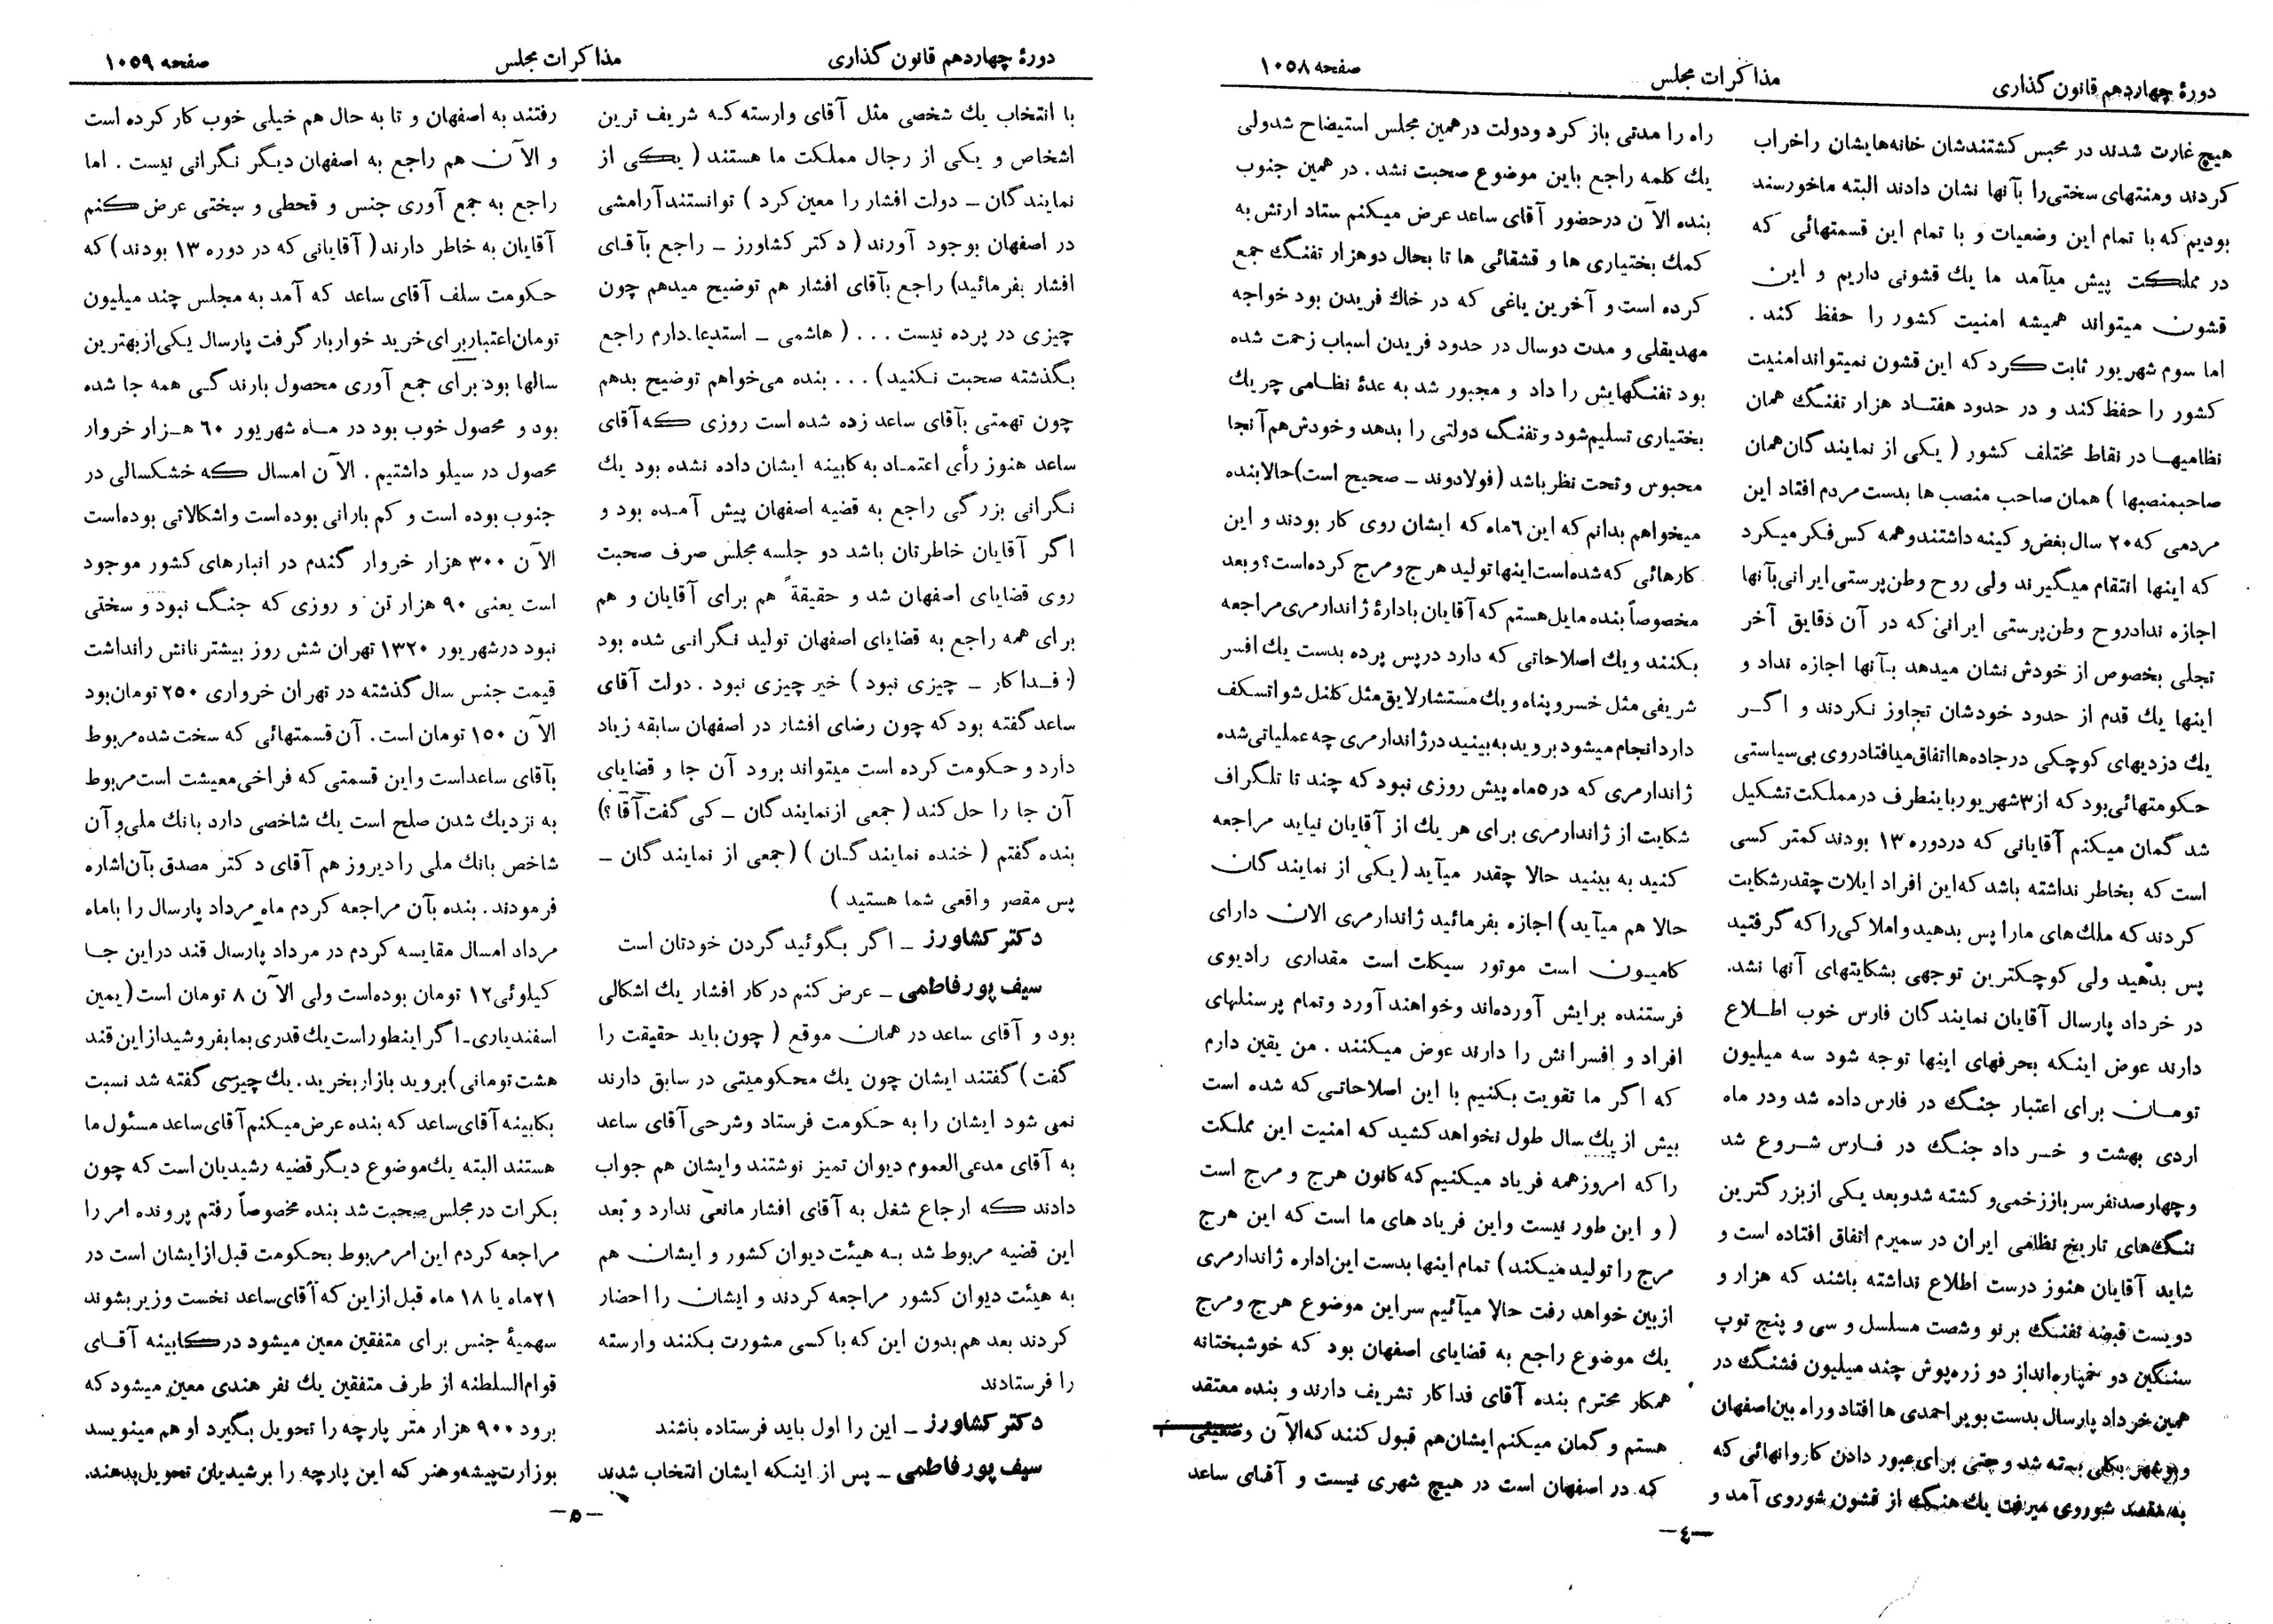 دورهٔ چهاردهم قانون گذاری
مذاکرات مجلس
صفحه ۱۰۵۸
هیچ غارت شدند در محبس کشتندشان خانه‌هایشان راخراب
کردند ومنتهای سختی‌را بآنها نشان دادند البته ماخورسند
بودیم که با تمام این وضعیات و با تمام این قسمتهائی که
در مملکت پیش میآمد ما یك قشونی داریم و این
قشون میتواند همیشه امنیت کشور را حفظ کند .
اما سوم شهریور ثابت کرد که این قشون نمیتواند امنیت
کشور را حفظ کند و در حدود هفتاد هزار تفنگ همان
نظامیها در نقاط مختلف کشور ( یکی از نمایندگان همان
صاحبمنصبها ) همان صاحب منصب ها بدست مردم افتاد این
مردمی که ۲۰ سال بغض و کینه داشتند وهمه کس فکر میکرد
که اینها انتقام میگیرند ولی روح وطن‌پرستی ایرانی بآنها
اجازه نداد روح وطن‌پرستی ایرانی که در آن دقایق آخر
تجلی بخصوص از خودش نشان میدهد بآنها اجازه نداد و
اینها یك قدم از حدود خودشان تجاوز نکردند و اگر
یك دزدیهای کوچکی در جاده‌ها اتفاق میافتاد روی بی‌سیاستی
حکومتهائی بود که از ۳ شهریور باینطرف در مملکت تشکیل
شد گمان میکنم آقایانی که در دوره ۱۳ بودند کمتر کسی
است که بخاطر نداشته باشد که این افراد ایلات چقدر شکایت
کردند که ملك‌های مارا پس بدهید و املاکی را که گرفتید
پس بدهید ولی کوچکترین توجهی بشکایتهای آنها نشد.
در خرداد پارسال آقایان نمایندگان فارس خوب اطلاع
دارند عوض اینکه بحرفهای اینها توجه شود سه میلیون
تومان برای اعتبار جنگ در فارس داده شد ودر ماه
اردی بهشت و خرداد جنگ در فارس شروع شد
و چهارصد نفر سرباز زخمی و کشته شد وبعد یکی از بزرگترین
ننگ‌های تاریخ نظامی ایران در سمیرم اتفاق افتاده است و
شاید آقایان هنوز درست اطلاع نداشته باشند که هزار و
دویست قبضه تفنگ برنو وشصت مسلسل و سی و پنج توپ
سنگین دو خمپاره‌انداز دو زره‌پوش چند میلیون فشنگ در
همین خرداد پارسال بدست بویراحمدی ها افتاد و راه بین اصفهان
و بوشهر بکلی بسته شد و حتی برای عبور دادن کاروانهائی که
به مقصد شوروی میرفت یك هنگ از قشون شوروی آمد و
راه را مدتی باز کرد ودولت در همین مجلس استیضاح شد ولی
یك کلمه راجع باین موضوع صحبت نشد . در همین جنوب
بنده الآن در حضور آقای ساعد عرض میکنم ستاد ارتش به
کمك بختیاری ها و قشقائی ها تا بحال دوهزار تفنگ جمع
کرده است و آخرین یاغی که در خاك فریدن بود خواجه
مهدیقلی و مدت دوسال در حدود فریدن اسباب زحمت شده
بود تفنگهایش را داد و مجبور شد به عدهٔ نظامی چریك
بختیاری تسلیم شود و تفنگ دولتی را بدهد و خودش هم آنجا
محبوس و تحت نظر باشد (فولادوند ـ صحیح است) حالا بنده
میخواهم بدانم که این ۶ ماه که ایشان روی کار بودند و این
کارهائی که شده است اینها تولید هرج و مرج کرده است؟ و بعد
مخصوصاً بنده مایل هستم که آقایان بادارهٔ ژاندارمری مراجعه
بکنند و یك اصلاحاتی که دارد در پس پرده بدست یك افسر
شریفی مثل خسرو پناه و یك مستشار لایق مثل کلنل شوانسکف
دارد انجام میشود بروید به بینید در ژاندارمری چه عملیاتی شده
ژاندارمری که در ۵ ماه پیش روزی نبود که چند تا تلگراف
شکایت از ژاندارمری برای هر یك از آقایان نیاید مراجعه
کنید به بینید حالا چقدر میآید ( یکی از نمایندگان
حالا هم میآید) اجازه بفرمائید ژاندارمری الان دارای
کامیون است موتور سیکلت است مقداری رادیوی
فرستنده برایش آورده‌اند وخواهند آورد وتمام پرسنلهای
افراد و افسرانش را دارند عوض میکنند . من یقین دارم
که اگر ما تقویت بکنیم با این اصلاحاتی که شده است
بیش از یك سال طول نخواهد کشید که امنیت این مملکت
را که امروز همه فریاد میکنیم که کانون هرج و مرج است
( و این طور نیست واین فریاد های ما است که این هرج
مرج را تولید میکند) تمام اینها بدست این اداره ژاندارمری
ازبین خواهد رفت حالا میآئیم سر این موضوع هرج ومرج
یك موضوع راجع به قضایای اصفهان بود که خوشبختانه
همکار محترم بنده آقای فداکار تشریف دارند و بنده معتقد
هستم و گمان میکنم ایشان هم قبول کنند که الآن وضعیتی
که در اصفهان است در هیچ شهری نیست و آقای ساعد
ـ٤ـ
دورهٔ چهاردهم قانون گذاری
مذاکرات مجلس
صفحه ۱۰۵۹
با انتخاب یك شخصی مثل آقای وارسته که شریف ترین
اشخاص و یکی از رجال مملکت ما هستند ( یکی از
نمایندگان ـ دولت افشار را معین کرد ) توانستند آرامشی
در اصفهان بوجود آورند ( دکتر کشاورز ـ راجع بآقای
افشار بفرمائید) راجع بآقای افشار هم توضیح میدهم چون
چیزی در پرده نیست . . . ( هاشمی ـ استدعا دارم راجع
بگذشته صحبت نکنید) . . . بنده می‌خواهم توضیح بدهم
چون تهمتی بآقای ساعد زده شده است روزی که آقای
ساعد هنوز رأی اعتماد به کابینه ایشان داده نشده بود یك
نگرانی بزرگی راجع به قضیه اصفهان پیش آمده بود و
اگر آقایان خاطرتان باشد دو جلسه مجلس صرف صحبت
روی قضایای اصفهان شد و حقیقةً هم برای آقایان و هم
برای همه راجع به قضایای اصفهان تولید نگرانی شده بود
( فداکار ـ چیزی نبود ) خیر چیزی نبود . دولت آقای
ساعد گفته بود که چون رضای افشار در اصفهان سابقه زیاد
دارد و حکومت کرده است میتواند برود آن جا و قضایای
آن جا را حل کند ( جمعی از نمایندگان ـ کی گفت آقا ؟)
بنده گفتم ( خنده نمایندگان ) (جمعی از نمایندگان ـ
پس مقصر واقعی شما هستید )
دکتر کشاورز ـ اگر بگوئید گردن خودتان است
سیف پور فاطمی ـ عرض کنم درکار افشار یك اشکالی
بود و آقای ساعد در همان موقع ( چون باید حقیقت را
گفت ) گفتند ایشان چون یك محکومیتی در سابق دارند
نمی شود ایشان را به حکومت فرستاد وشرحی آقای ساعد
به آقای مدعی‌العموم دیوان تمیز نوشتند وایشان هم جواب
دادند که ارجاع شغل به آقای افشار مانعی ندارد و بعد
این قضیه مربوط شد به هیئت دیوان کشور و ایشان هم
به هیئت دیوان کشور مراجعه کردند و ایشان را احضار
کردند بعد هم بدون این که با کسی مشورت بکنند وارسته
را فرستادند
دکتر کشاورز ـ این را اول باید فرستاده باشند
سیف پور فاطمی ـ پس از اینکه ایشان انتخاب شدند
رفتند به اصفهان و تا به حال هم خیلی خوب کار کرده است
و الآن هم راجع به اصفهان دیگر نگرانی نیست . اما
راجع به جمع آوری جنس و قحطی و سختی عرض کنم
آقایان به خاطر دارند ( آقایانی که در دوره ۱۳ بودند) که
حکومت سلف آقای ساعد که آمد به مجلس چند میلیون
تومان اعتبار برای خرید خواربار گرفت پارسال یکی از بهترین
سالها بود برای جمع آوری محصول بارندگی همه جا شده
بود و محصول خوب بود در ماه شهریور ۶۰ هزار خروار
محصول در سیلو داشتیم . الآن امسال که خشکسالی در
جنوب بوده است و کم بارانی بوده است واشکالاتی بوده‌است
الآن ۳۰۰ هزار خروار گندم در انبارهای کشور موجود
است یعنی ۹۰ هزار تن و روزی که جنگ نبود و سختی
نبود در شهریور ۱۳۲۰ تهران شش روز بیشتر نانش را نداشت
قیمت جنس سال گذشته در تهران خرواری ۲۵۰ تومان بود
الآن ۱۵۰ تومان است. آن قسمتهائی که سخت شده مربوط
بآقای ساعد است واین قسمتی که فراخی معیشت است مربوط
به نزدیك شدن صلح است یك شاخصی دارد بانك ملی و آن
شاخص بانك ملی را دیروز هم آقای دکتر مصدق بآن اشاره
فرمودند. بنده بآن مراجعه کردم ماه مرداد پارسال را باماه
مرداد امسال مقایسه کردم در مرداد پارسال قند در این جا
کیلوئی ۱۲ تومان بوده‌است ولی الآن ۸ تومان است ( یمین
اسفندیاری ـ اگر اینطور است یك قدری بما بفروشید از این قند
هشت تومانی ) بروید بازار بخرید. یك چیزی گفته شد نسبت
بکابینه آقای ساعد که بنده عرض میکنم آقای ساعد مسئول ما
هستند البته یك موضوع دیگر قضیه رشیدیان است که چون
بکرات در مجلس صحبت شد بنده مخصوصاً رفتم پرونده امر را
مراجعه کردم این امر مربوط بحکومت قبل از ایشان است در
۲۱ ماه یا ۱۸ ماه قبل از این که آقای ساعد نخست وزیر بشوند
سهمیهٔ جنس برای متفقین معین میشود در کابینه آقای
قوام‌السلطنه از طرف متفقین یك نفر هندی معین میشود که
برود ۹۰۰ هزار متر پارچه را تحویل بگیرد او هم مینویسد
بوزارت پیشه و هنر که این پارچه را برشیدیان تحویل بدهند.
ـ۵ـ